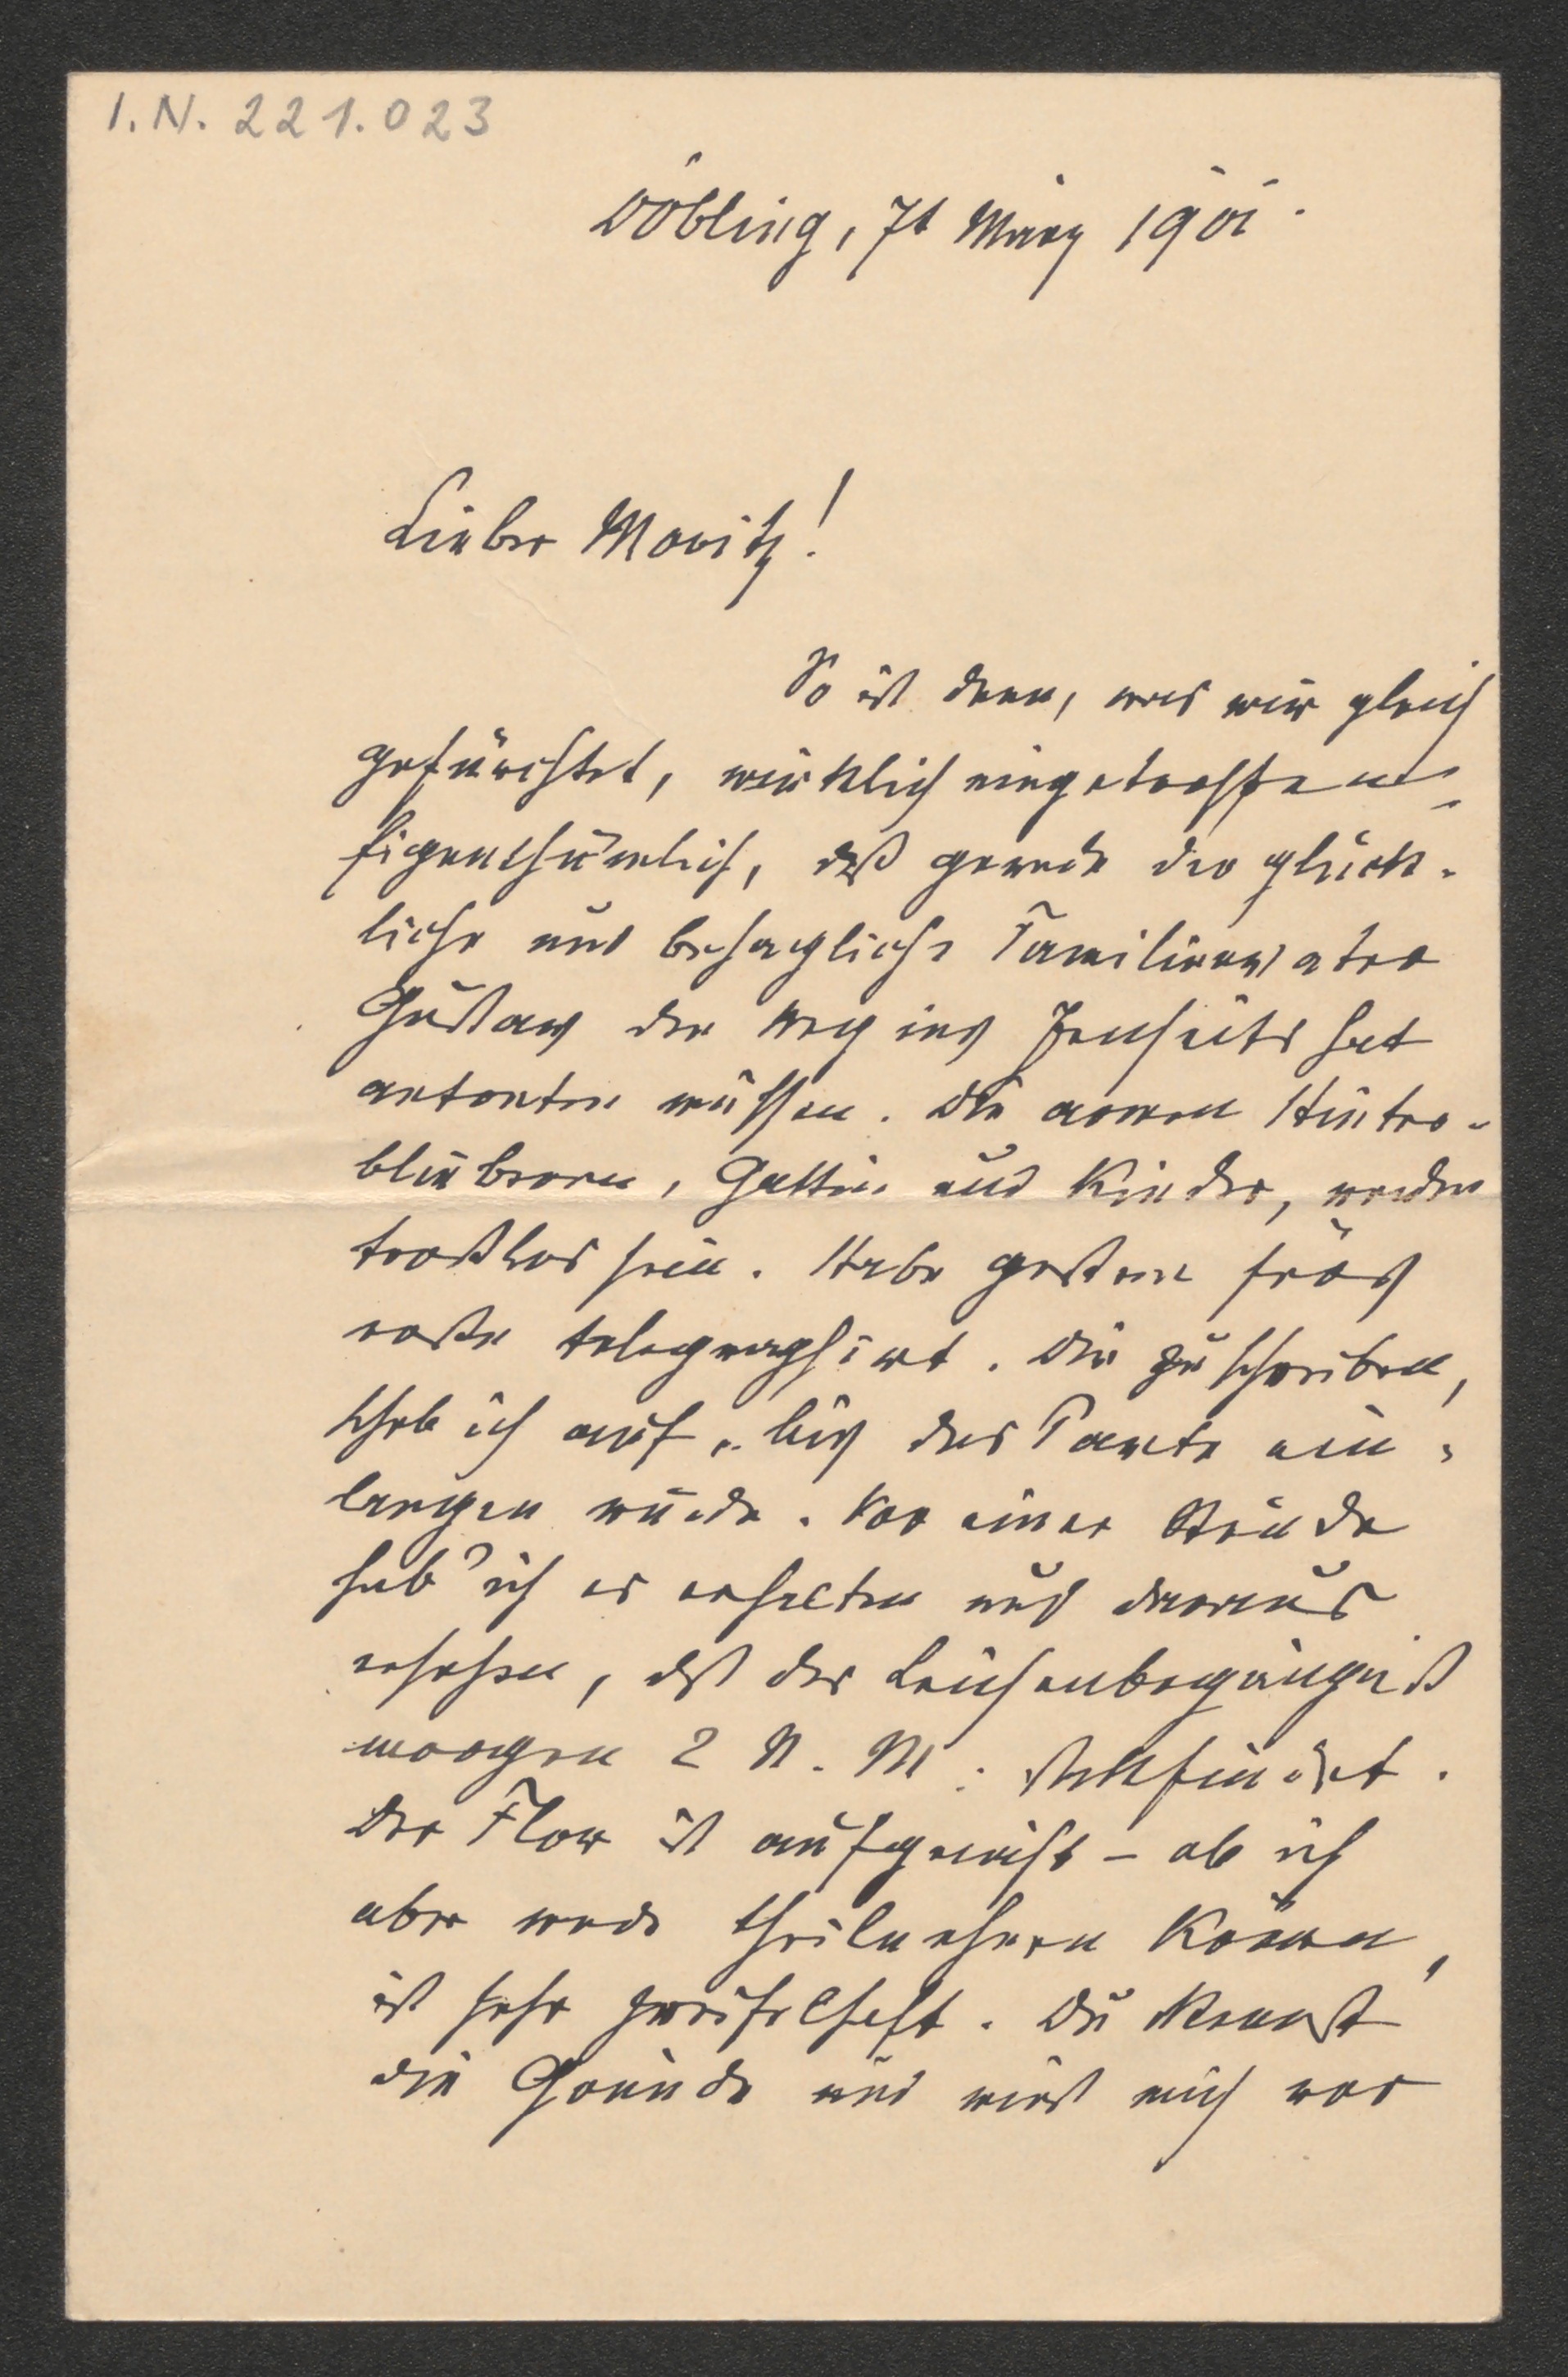 I.N. 221.023
Döbling, 7t März 1901.
Lieber Moritz!
So ist denn, was wir gleich
gefürchtet, wirklich eingetroffen.
Eigenthümlich, daß gerade der glück-
liche und behagliche Familienvater
Gustav den Weg ins Jenseits hat
antreten müssen. Die armen Hinter-
bliebenen, Gattin und Kinder, werden
trostlos sein. Habe gestern früh
telegraphirt. Dir zu schreiben,
schob ich auf, bis das Parte ein-
langen würde. Vor einer Stunde
hab' ich es erhalten und daraus
ersehen, daß das Leichenbegängniß
morgen 2 N. M. stattfindet.
Der Flor ist aufgenäht – ob ich
aber werde theilnehmen können,
ist sehr zweifelhaft. Du kennst
die Gründe und wirst mich vor